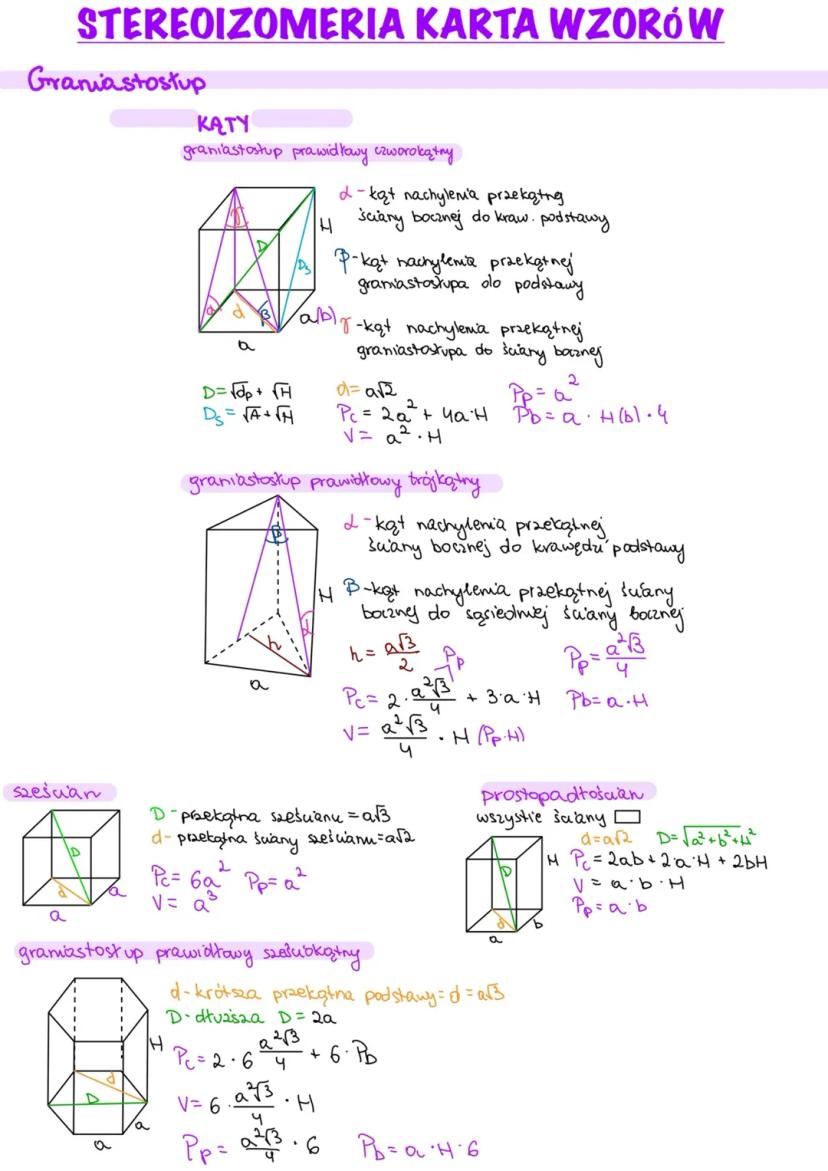 STEREOIZOMERIA KARTA WZORÓW
Graniastosłup
KĄTY
graniastosłup prawidłowy czworokątny
α - kąt nachylenia przekątnej
ściany bocznej do kraw. podstawy
H
β - kąt nachylenia przekątnej
graniastosłupa do podstawy
γ - kąt nachylenia przekątnej
graniastosłupa do ściany bocznej
γ
D
Ds
α
d
β
a(b)
a
D = √dp + √H
d = a√2
Pp = a²
Ds = √A + √H
Pc = 2a² + 4a·H
Pb = a · H(b) · 4
V = a² · H
graniastosłup prawidłowy trójkątny
α - kąt nachylenia przekątnej
ściany bocznej do krawędzi podstawy
β
H
β - kąt nachylenia przekątnej ściany
bocznej do sąsiedniej ściany bocznej
α
h
a
h = a√3/2
Pp
Pp = a²√3/4
Pc = 2 · a²√3/4 + 3·a·H
Pb = a·H
V = a²√3/4 · H (Pp·H)
sześcian
D - przekątna sześcianu = a√3
d - przekątna ściany sześcianu = a√2
Pc = 6a² Pp = a²
V = a³
D
d
a
a
prostopadłościan
wszystkie ściany
d = a√2 D = √a² + b² + H²
H
Pc = 2ab + 2·a·H + 2bH
V = a·b·H
Pp = a·b
D
d
b
a
graniastosłup prawidłowy sześciokątny
d - krótsza przekątna podstawy = d = a√3
D - dłuższa D = 2a
H
Pc = 2·6 a²√3/4 + 6·Pb
V = 6· a²√3/4 · H
Pp = a²√3/4 · 6
Pb = a·H·6
d
D
a
a